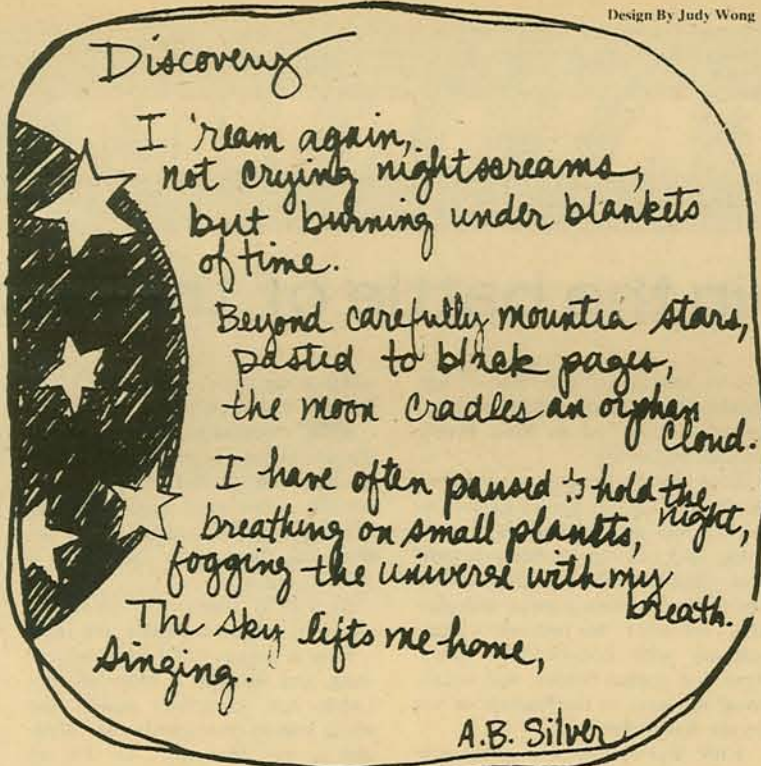 Design By Judy Wong
Discovery
I 'ream again,
not crying nightscreams,
but burning under blankets
of time.
Beyond carefully mountia stars,
pasted to black pages,
the moon cradles an orphan
cloud.
I have often paused to hold the
night,
breathing on small planets,
fogging the universe with my
breath.
The sky lifts me home,
singing.
A.B. Silver